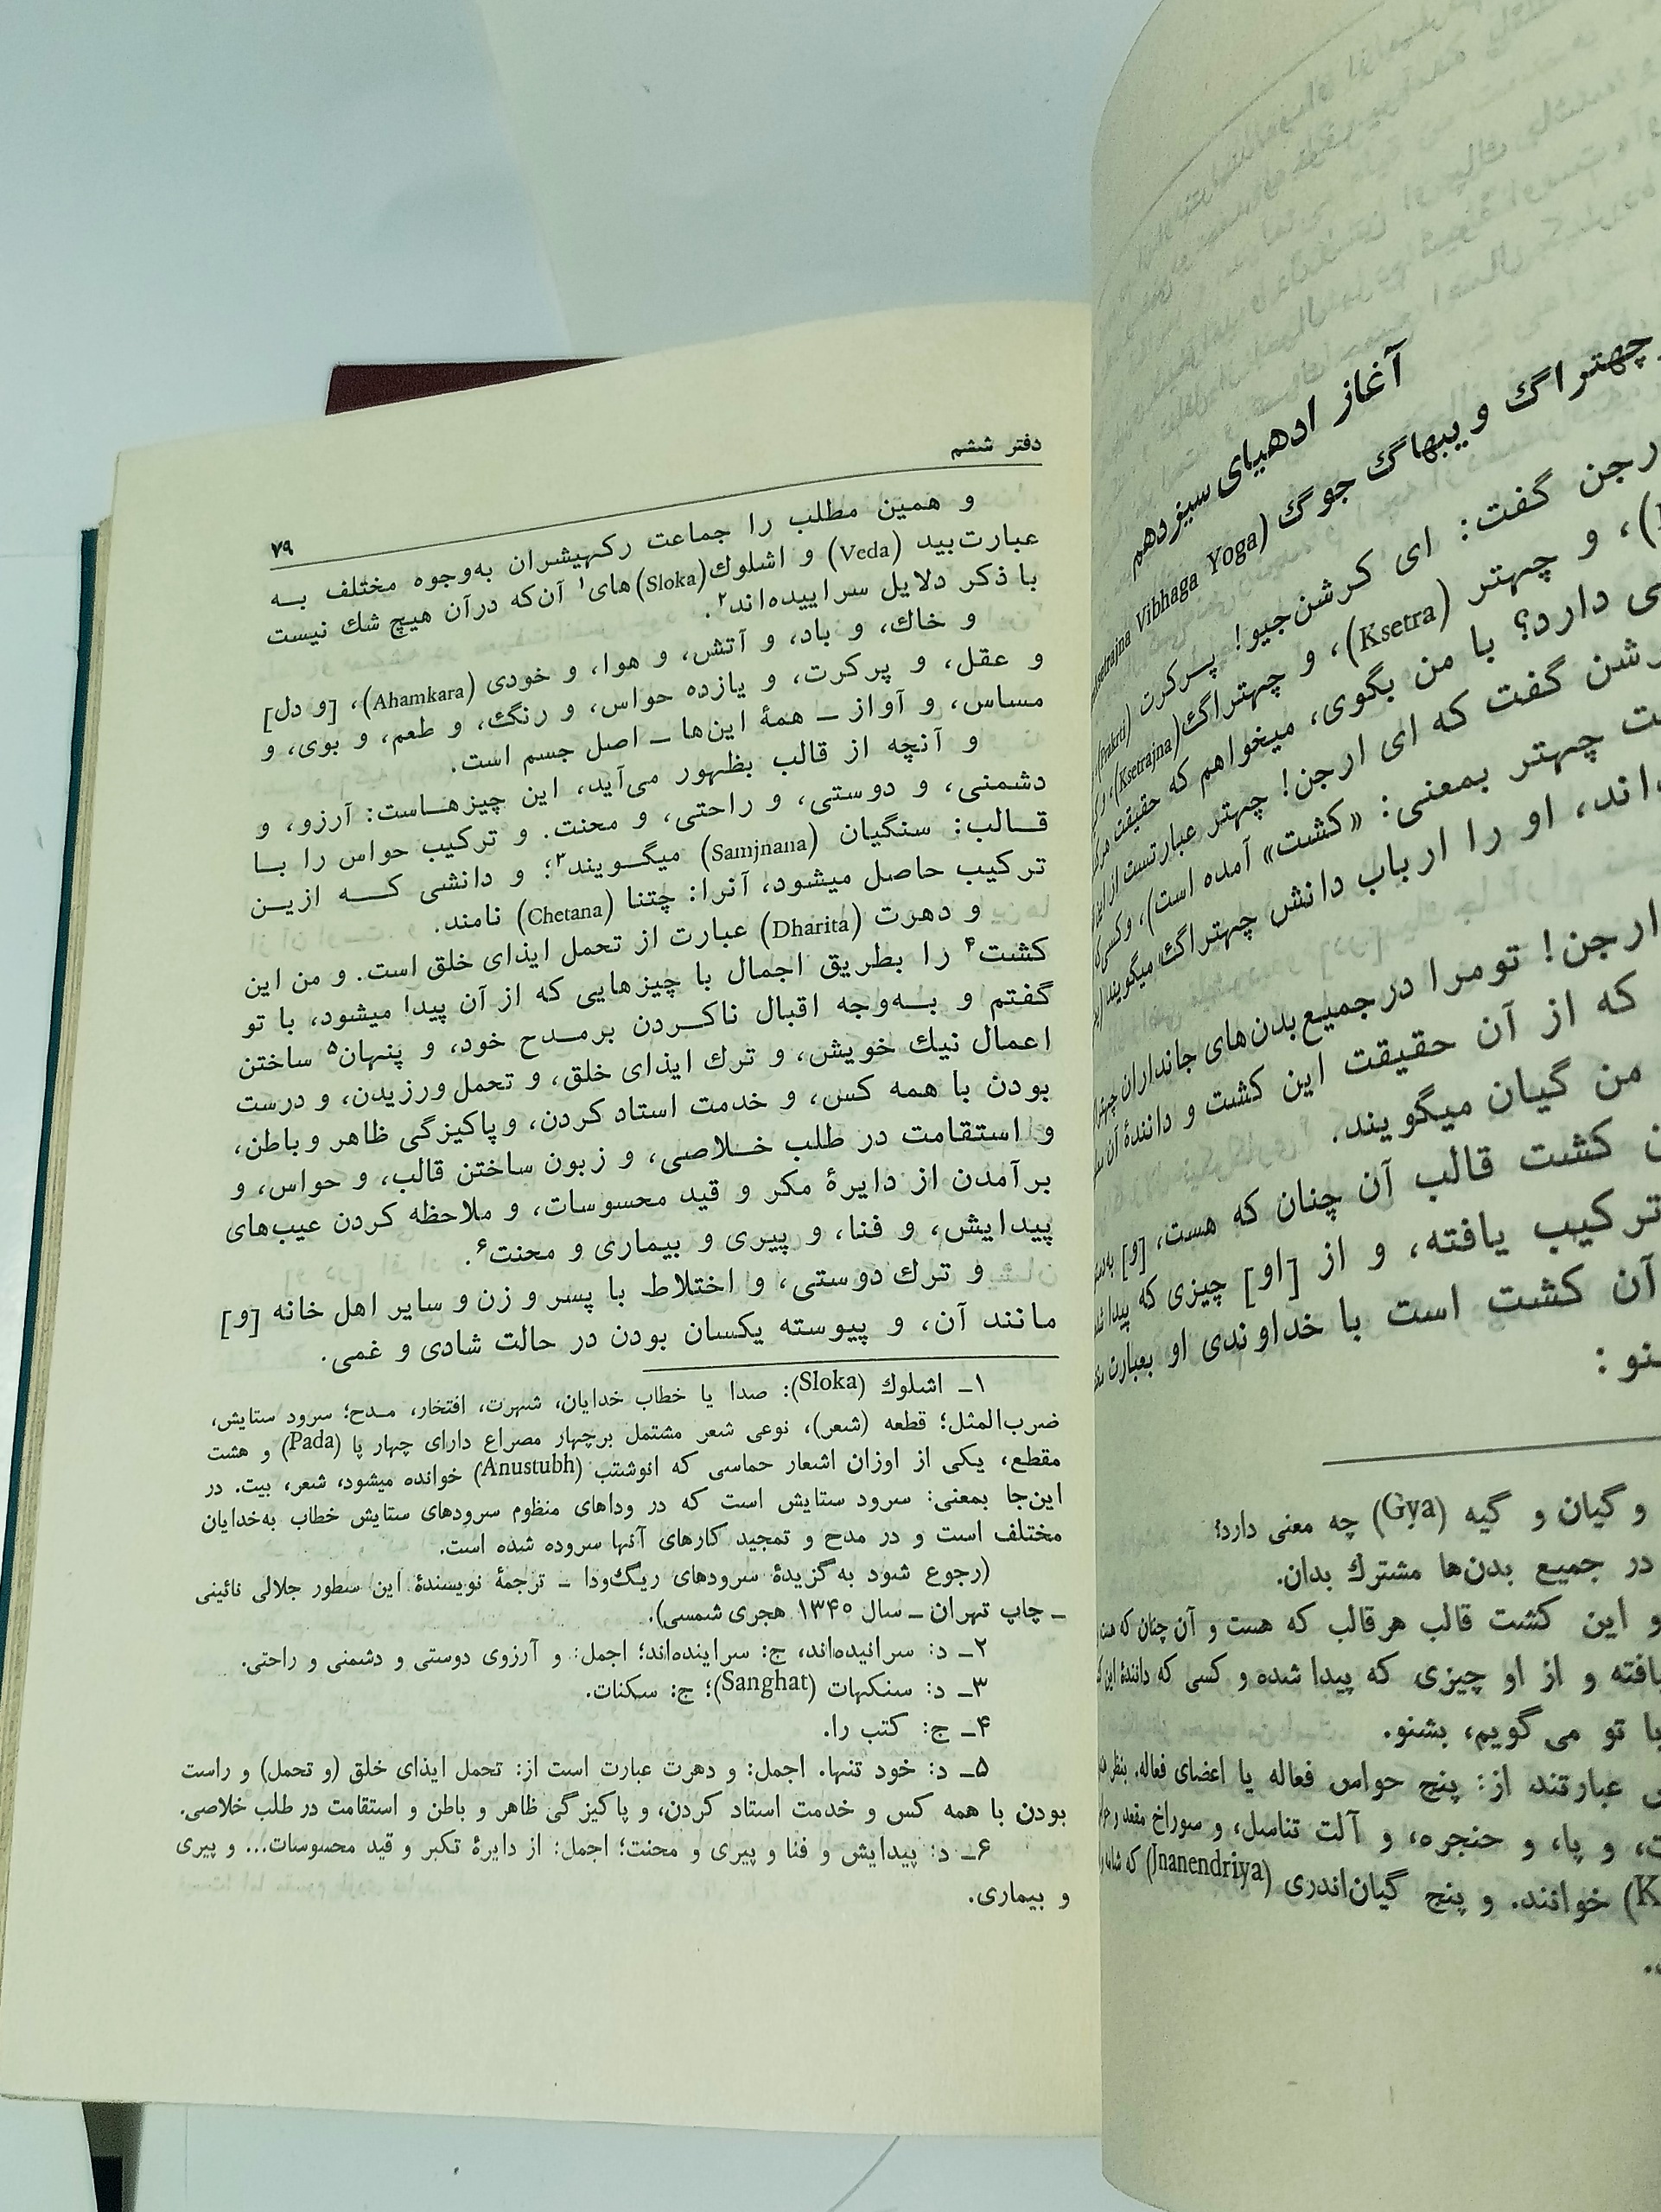 آغاز ادهیای سیزدهم
چهتراگ و یبهاگ جوگ (Vibhaga Yoga
رجن گفت: ای کرشن‌جیو! پرکرت (Prakrti)
، و چهتر (Ksetra)، و چهتراگ (Ksetrajna)،
دارد؟ با من بگوی، میخواهم که حقیقت
گفت که ای ارجن! چهتر عبارتست از
چهتر بمعنی: «کشت» آمده است)، و کسی
اند، او را ارباب دانش چهتراگ میگویند
ارجن! تو مرا در جمیع بدن‌های جانداران
که از آن حقیقت این کشت و دانندهٔ آن
من گیان میگویند.
کشت قالب آن چنان که هست، [و]
ترکیب یافته، و از [او] چیزی که پیدا
آن کشت است با خداوندی او بعبارت
و گیان و گیه (Gya) چه معنی دارد؟
در جمیع بدن‌ها مشترك بدان.
و این کشت قالب هر قالب که هست و آن چنان که
یافته و از او چیزی که پیدا شده و کسی که دانندهٔ این
با تو می گویم، بشنو.
عبارتند از: پنج حواس فعاله یا اعضای فعاله.
و پا، و حنجره، و آلت تناسل، و سوراخ مقعد
خوانند. و پنج گیان‌اندری (Jnanendriya) که
دفتر ششم
۷۹
و همین مطلب را جماعت رکهیشران به‌وجوه مختلف به
عبارت‌بید (Veda) و اشلوك (Sloka)های۱ آن‌که درآن هیچ شك نیست
با ذکر دلایل سراییده‌اند۲.
و خاك، و باد، و آتش، و هوا، و خودی (Ahamkara)، [و دل]
و عقل، و پرکرت، و یازده حواس، و رنگ، و طعم، و بوی، و
مساس، و آواز ــ همهٔ این‌ها ــ اصل جسم است.
و آنچه از قالب بظهور می‌آید، این چیزهاست: آرزو، و
دشمنی، و دوستی، و راحتی، و محنت. و ترکیب حواس را بـا
قـالب: سنگیان (Samjnana) میگـویند۳؛ و دانشی کـه ازیـن
ترکیب حاصل میشود، آنرا: چتنا (Chetana) نامند.
و دهرت (Dharita) عبارت از تحمل ایذای خلق است. و من این
کشت۴ را بطریق اجمال با چیزهایی که از آن پیدا میشود، با تو
گفتم و بـه‌وجه اقبال ناکـردن برمـدح خود، و پنهان۵ ساختن
اعمال نیك خویش، و ترك ایذای خلق، و تحمل ورزیدن، و درست
بودن با همه کس، و خدمت استاد کردن، و پاکیزگی ظاهر و باطن،
و استقامت در طلب خـلاصی، و زبون ساختن قالب، و حواس، و
برآمدن از دایرهٔ مکر و قید محسوسات، و ملاحظه کردن عیب‌های
پیدایش، و فنا، و پیری و بیماری و محنت۶.
و ترك دوستی، و اختلاط با پسر و زن و سایر اهل خانه [و]
مانند آن، و پیوسته یکسان بودن در حالت شادی و غمی.
۱ــ اشلوك (Sloka): صدا یا خطاب خدایان، شهرت، افتخار، مـدح؛ سرود ستایش،
ضرب‌المثل؛ قطعه (شعر)، نوعی شعر مشتمل برچهار مصراع دارای چهار پا (Pada) و هشت
مقطع، یکی از اوزان اشعار حماسی که انوشتب (Anustubh) خوانده میشود، شعر، بیت. در
این‌جا بمعنی: سرود ستایش است که در وداهای منظوم سرودهای ستایش خطاب به‌خدایان
مختلف است و در مدح و تمجید کارهای آنها سروده شده است.
(رجوع شود به گزیدهٔ سرودهای ریگ‌ودا ــ ترجمهٔ نویسندهٔ این سطور جلالی نائینی
ــ چاپ تهران ــ سال ۱۳۴۰ هجری شمسی).
۲ــ د: سرانیده‌اند، ج: سراینده‌اند؛ اجمل: و آرزوی دوستی و دشمنی و راحتی.
۳ــ د: سنکهات (Sanghat)؛ ج: سکنات.
۴ــ ج: کتب را.
۵ــ د: خود تنها. اجمل: و دهرت عبارت است از: تحمل ایذای خلق (و تحمل) و راست
بودن با همه کس و خدمت استاد کردن، و پاکیزگی ظاهر و باطن و استقامت در طلب خلاصی.
۶ــ د: پیدایش و فنا و پیری و محنت؛ اجمل: از دایرهٔ تکبر و قید محسوسات... و پیری
و بیماری.